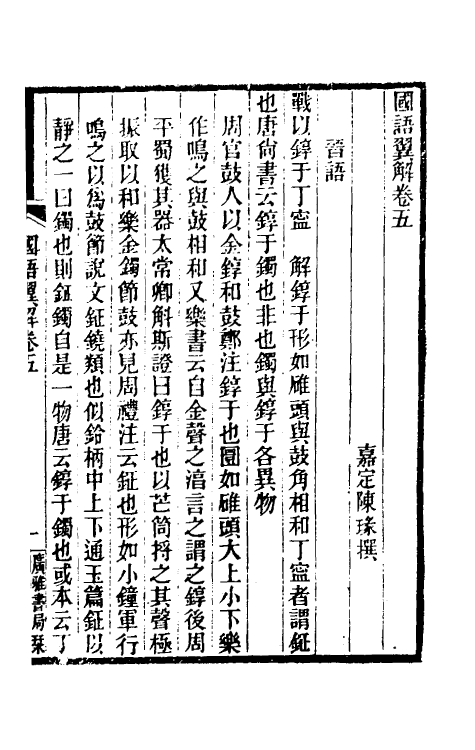 國語翼解卷五
嘉定陳瑑撰
晉語
戰以錞于丁寍　解錞于形如碓頭與鼓角相和丁寍者謂鉦
也唐尙書云錞于鐲也非也鐲與錞于各異物
周官鼓人以金錞和鼓鄭注錞于也圜如碓頭大上小下樂
作鳴之與鼓相和又樂書云自金聲之淳言之謂之錞後周
平蜀獲其器太常卿斛斯證曰錞于也以芒筒捋之其聲極
振取以和樂金鐲節鼓亦見周禮注云鉦也形如小鐘軍行
鳴之以爲鼓節說文鉦鐃類也似鈴柄中上下通玉篇鉦以
靜之一曰鐲也則鉦鐲自是一物唐云錞于鐲也或本云丁
國語翼解卷五
一
廣雅書局栞